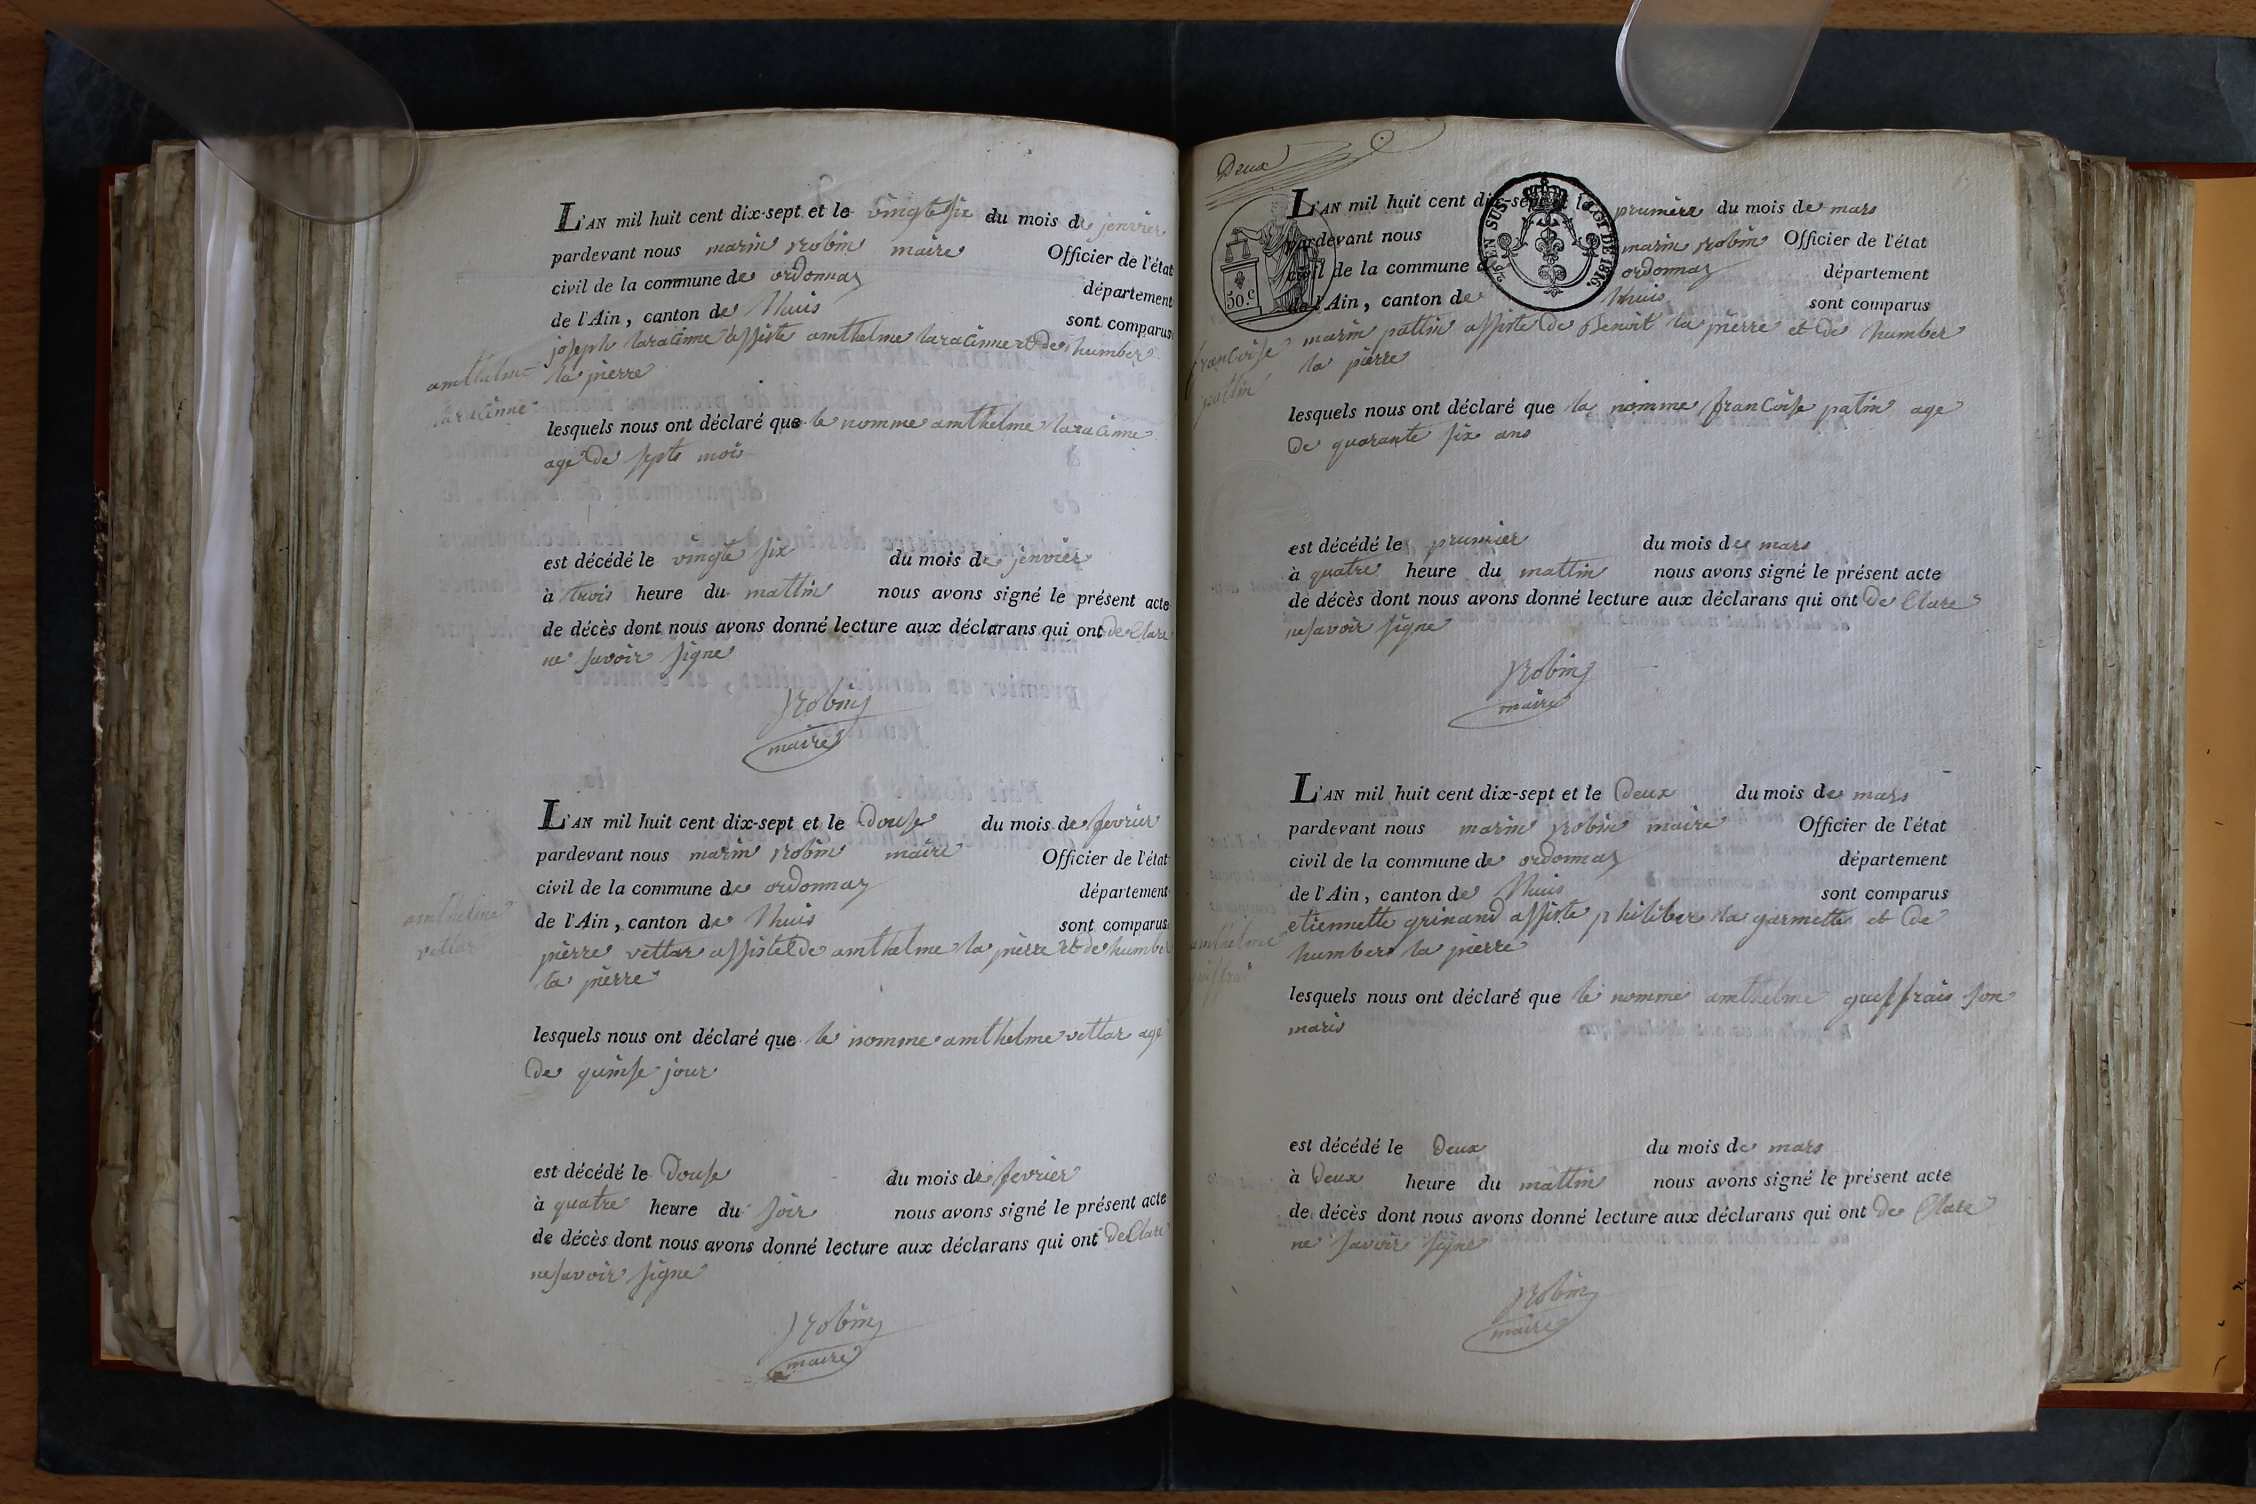 L'AN mil huit cent dix-sept et le vingt six du mois de jenvier
pardevant nous marin robin maire Officier de l'état
civil de la commune de ordonnaz département
de l'Ain, canton de lhuis sont comparus
joseph laracinne assiste amthelme laracinne et de humber
la pierre
amthelme
laracinne
lesquels nous ont déclaré que le nomme amthelme laracinne
age de septs mois
est décédé le vingte six du mois de jenvier
à trois heure du mattin nous avons signé le présent acte
de décès dont nous avons donné lecture aux déclarans qui ont de Clare
ne savoir signe
Robin
maire
L'AN mil huit cent dix-sept et le douse du mois de fevrier
pardevant nous marin robin maire Officier de l'état
civil de la commune de ordonnaz département
de l'Ain, canton de lhuis sont comparus
pierre vettar assiste de amthelme la pierre et de humber
la pierre
amthelme
vettar
lesquels nous ont déclaré que le nomme amthelme vettar age
de quinse jour
est décédé le douse du mois de fevrier
à quatre heure du soir nous avons signé le présent acte
de décès dont nous avons donné lecture aux déclarans qui ont de Clare
ne savoir signe
Robin
maire
Deux
50.c
EN SUS. LOI DE 1816.
L'AN mil huit cent dix-sept et le prumiere du mois de mars
pardevant nous marin robin Officier de l'état
civil de la commune de ordonnaz département
de l'Ain, canton de lhuis sont comparus
marin pattin assiste de Benoit la pierre et de humber
la pierre
francoise
pattin
lesquels nous ont déclaré que la nomme francoise patin age
de quarante six ans
est décédé le prumier du mois de mars
à quatre heure du mattin nous avons signé le présent acte
de décès dont nous avons donné lecture aux déclarans qui ont de Clare
ne savoir signe
Robin
maire
L'AN mil huit cent dix-sept et le deux du mois de mars
pardevant nous marin robin maire Officier de l'état
civil de la commune de ordonnaz département
de l'Ain, canton de lhuis sont comparus
etiennette grinand assiste philiber la garmette et de
humber la pierre
amthelme
lesquels nous ont déclaré que le nomme amthelme gueffrais son
maris
est décédé le deux du mois de mars
à deux heure du mattin nous avons signé le présent acte
de décès dont nous avons donné lecture aux déclarans qui ont de Clare
ne savoir signe
Robin
maire